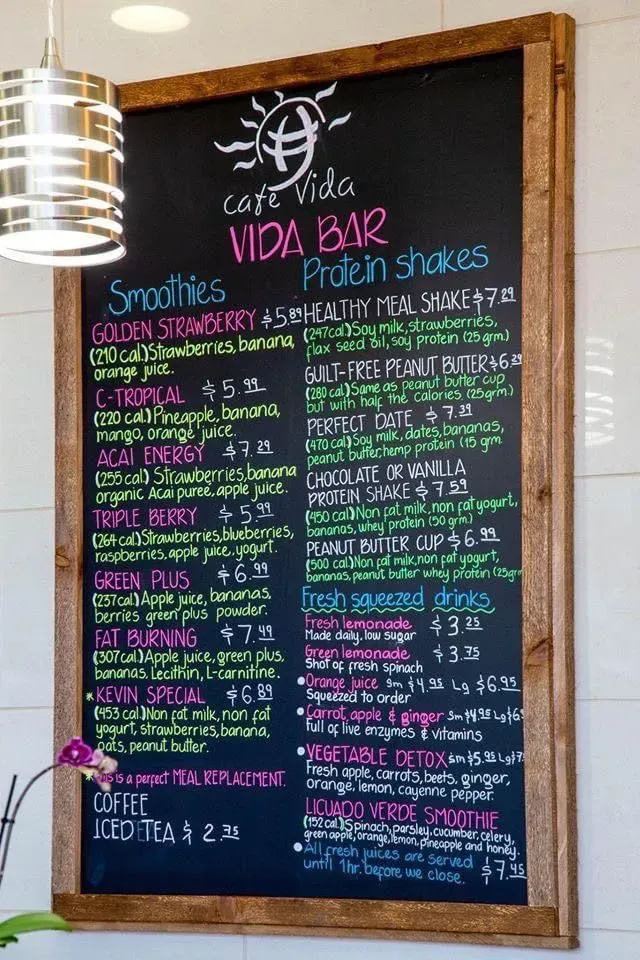 cafe Vida
VIDA BAR
Smoothies
GOLDEN STRAWBERRY $5.89
(210 cal.) Strawberries, banana,
orange juice.
C-TROPICAL $5.99
(220 cal.) Pineapple, banana,
mango, orange juice.
ACAI ENERGY $7.29
(255 cal) Strawberries, banana
organic Acai puree, apple juice.
TRIPLE BERRY $5.99
(264 cal.) Strawberries, blueberries,
raspberries, apple juice, yogurt.
GREEN PLUS $6.99
(237 cal.) Apple juice, bananas,
berries green plus powder.
FAT BURNING $7.49
(307 cal.) Apple juice, green plus,
bananas, Lecithin, L-carnitine.
*KEVIN SPECIAL $6.89
(453 cal.) Non fat milk, non fat
yogurt, strawberries, banana,
oats, peanut butter.
is a perfect MEAL REPLACEMENT.
COFFEE
ICED TEA $2.75
Protein shakes
HEALTHY MEAL SHAKE $7.29
(247 cal.) Soy milk, strawberries,
flax seed oil, soy protein (25 grm.)
GUILT-FREE PEANUT BUTTER $6.29
(280 cal.) Same as peanut butter cup
but with half the calories (25grm.)
PERFECT DATE $7.39
(470 cal.) Soy milk, dates, bananas,
peanut butter, hemp protein (15 grm.
CHOCOLATE OR VANILLA
PROTEIN SHAKE $7.59
(450 cal.) Non fat milk, non fat yogurt,
bananas, whey protein (50 grm.)
PEANUT BUTTER CUP $6.99
(500 cal.) Non fat milk, non fat yogurt,
bananas, peanut butter whey protein (25grm
Fresh squeezed drinks
Fresh lemonade $3.25
Made daily, low sugar
Green lemonade $3.75
Shot of fresh spinach
•Orange juice sm $4.95 Lg $6.95
Squeezed to order
•Carrot, apple & ginger sm $4.95 Lg $6.
Full of live enzymes & vitamins
•VEGETABLE DETOX sm $5.95 Lg $7.
Fresh apple, carrots, beets, ginger,
orange, lemon, cayenne pepper.
LICUADO VERDE SMOOTHIE
(152 cal.) Spinach, parsley, cucumber, celery,
green apple, orange, lemon, pineapple and honey.
$7.45
•All fresh juices are served
until 1hr. before we close.